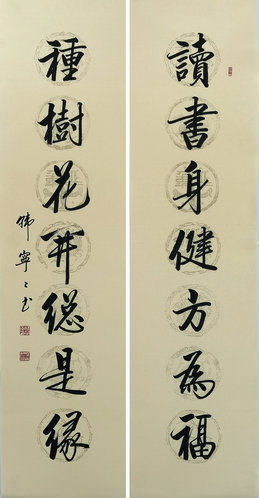 讀書身健方為福
種樹花開總是緣
寧〻书